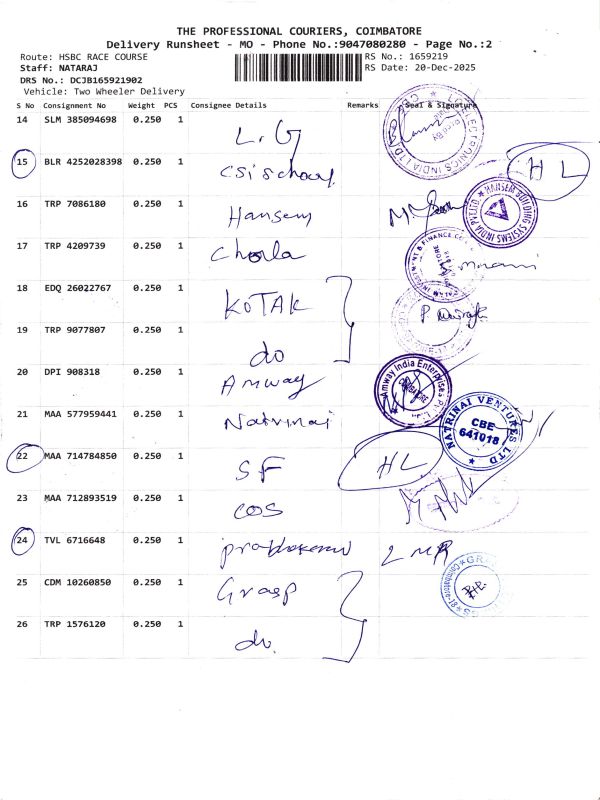 THE PROFESSIONAL COURIERS, COIMBATORE
Delivery Runsheet - MO - Phone No.:9047080280 - Page No.:2
Route: HSBC RACE COURSE RS No.: 1659219
Staff: NATARAJ RS Date: 20-Dec-2025
DRS No.: DCJB165921902
Vehicle: Two Wheeler Delivery
S No Consignment No Weight PCS Consignee Details Remarks Seal & Signature
14 SLM 385094698 0.250 1 L.G
15 BLR 4252028398 0.250 1 CSI School HL
16 TRP 7086180 0.250 1 Hansem
HANSEM BUILDING SYSTEMS INDIA PVT LTD
17 TRP 4209739 0.250 1 Chola
18 EDQ 26022767 0.250 1 KOTAK
19 TRP 9077807 0.250 1 do
20 DPI 908318 0.250 1 Amway
Amway India Enterprises Pvt. Ltd.
21 MAA 577959441 0.250 1 Natrinai
NATRINAI VENTURES LTD
CBE
641018
22 MAA 714784850 0.250 1 SF HL
23 MAA 712893519 0.250 1 COS
24 TVL 6716648 0.250 1
25 CDM 10260850 0.250 1 Grasp
26 TRP 1576120 0.250 1 do